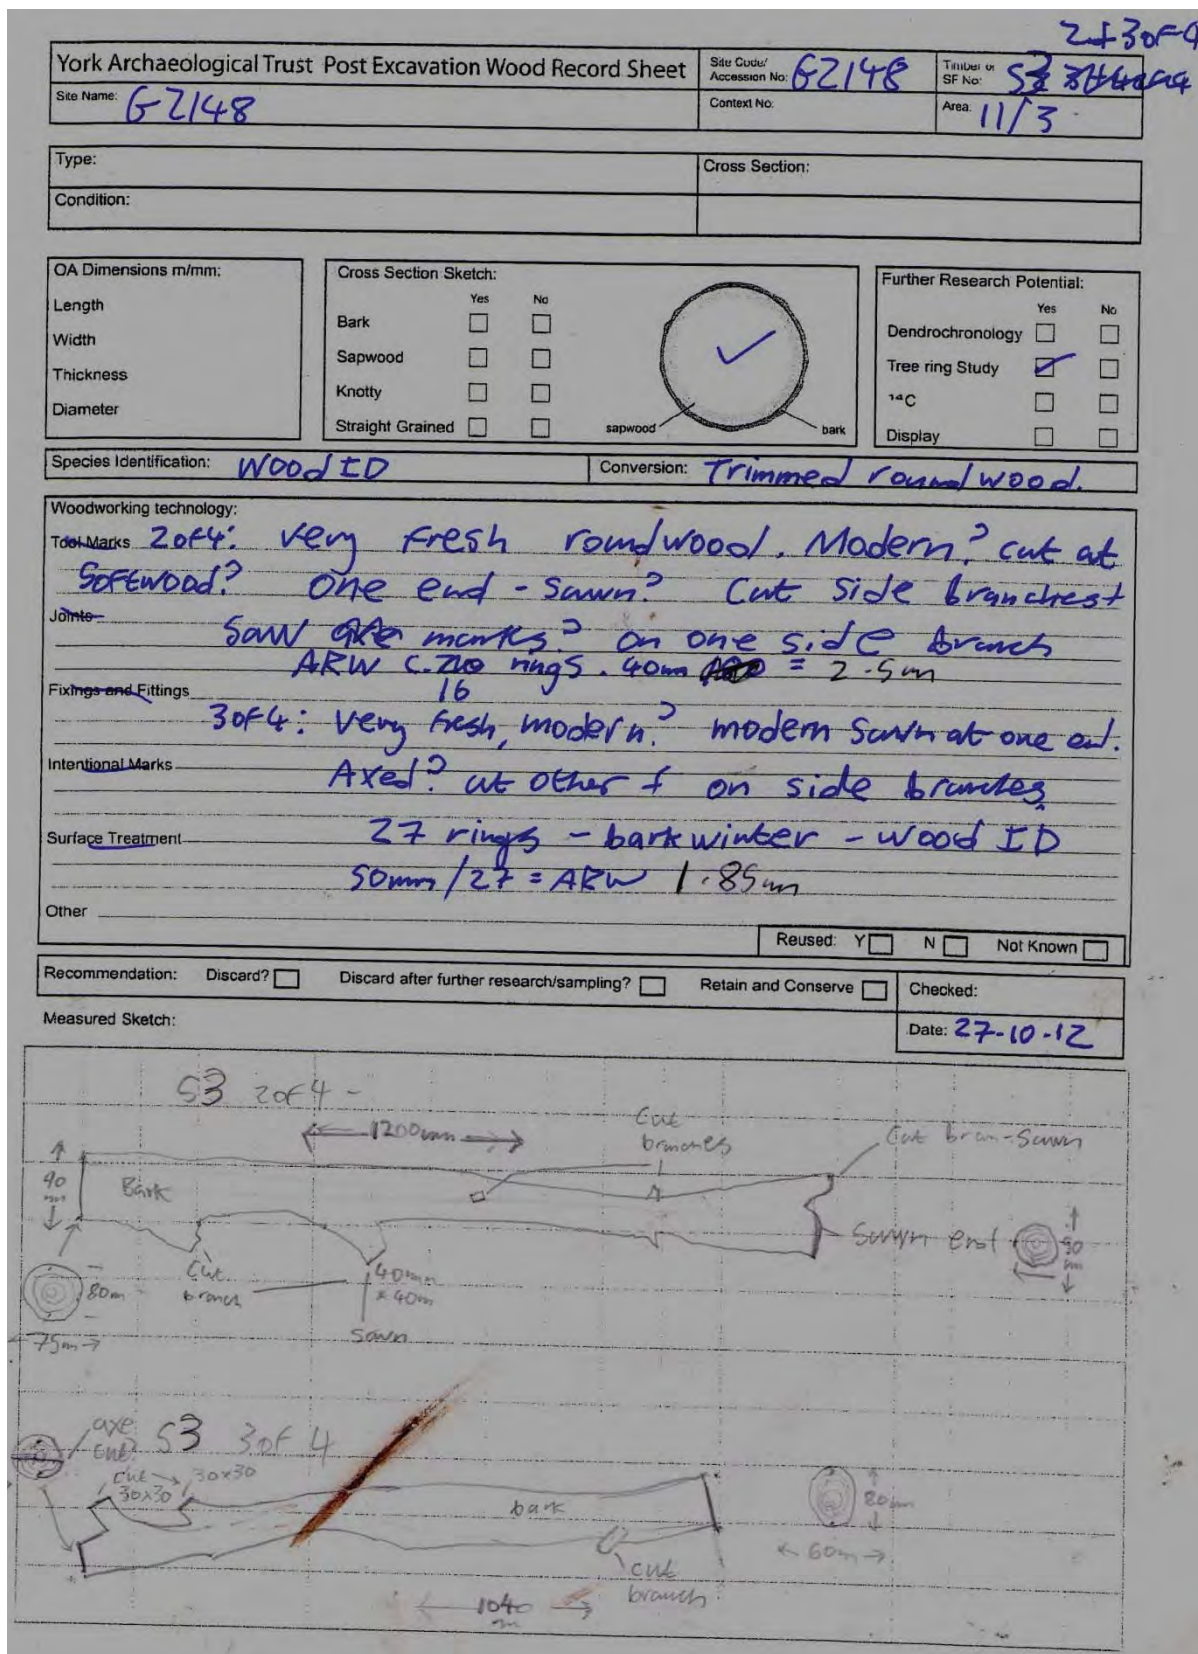 2+3 of 4
York Archaeological Trust Post Excavation Wood Record Sheet
Site Code/ Accession No: G2148
Timber or SF No: S3
Site Name: G2148
Context No:
Area: 11/3
Type:
Cross Section:
Condition:
OA Dimensions m/mm:
Length
Width
Thickness
Diameter
Cross Section Sketch:
Yes No
Bark
Sapwood
Knotty
Straight Grained
sapwood
bark
Further Research Potential:
Yes No
Dendrochronology
Tree ring Study
¹⁴C
Display
Species Identification: Wood ID
Conversion: Trimmed roundwood.
Woodworking technology:
Tool Marks 2of4: Very fresh roundwood. Modern? cut at
Softwood? one end - sawn? Cut side branches+
Joints
Saw marks? on one side branch
ARW c. rings. 40mm = 2.5mm
16
Fixings and Fittings
3of4: Very fresh, modern? modern sawn at one end.
Intentional Marks
Axed? at other + on side branches
Surface Treatment 27 rings - bark winter - Wood ID
50mm/27 = ARW 1.85mm
Other
Reused: Y N Not Known
Recommendation: Discard? Discard after further research/sampling? Retain and Conserve
Checked:
Measured Sketch:
Date: 27-10-12
S3 2of4 -
1200mm
Cut branches
Cut bran-sawn
90 mm
Bark
Sawn end
90 mm
80m
Cut branch
40mm x 40m
sawn
75m
axe cut?
S3 3of4
cut 30x30
30x30
bark
80mm
60m
cut branch
1040 m